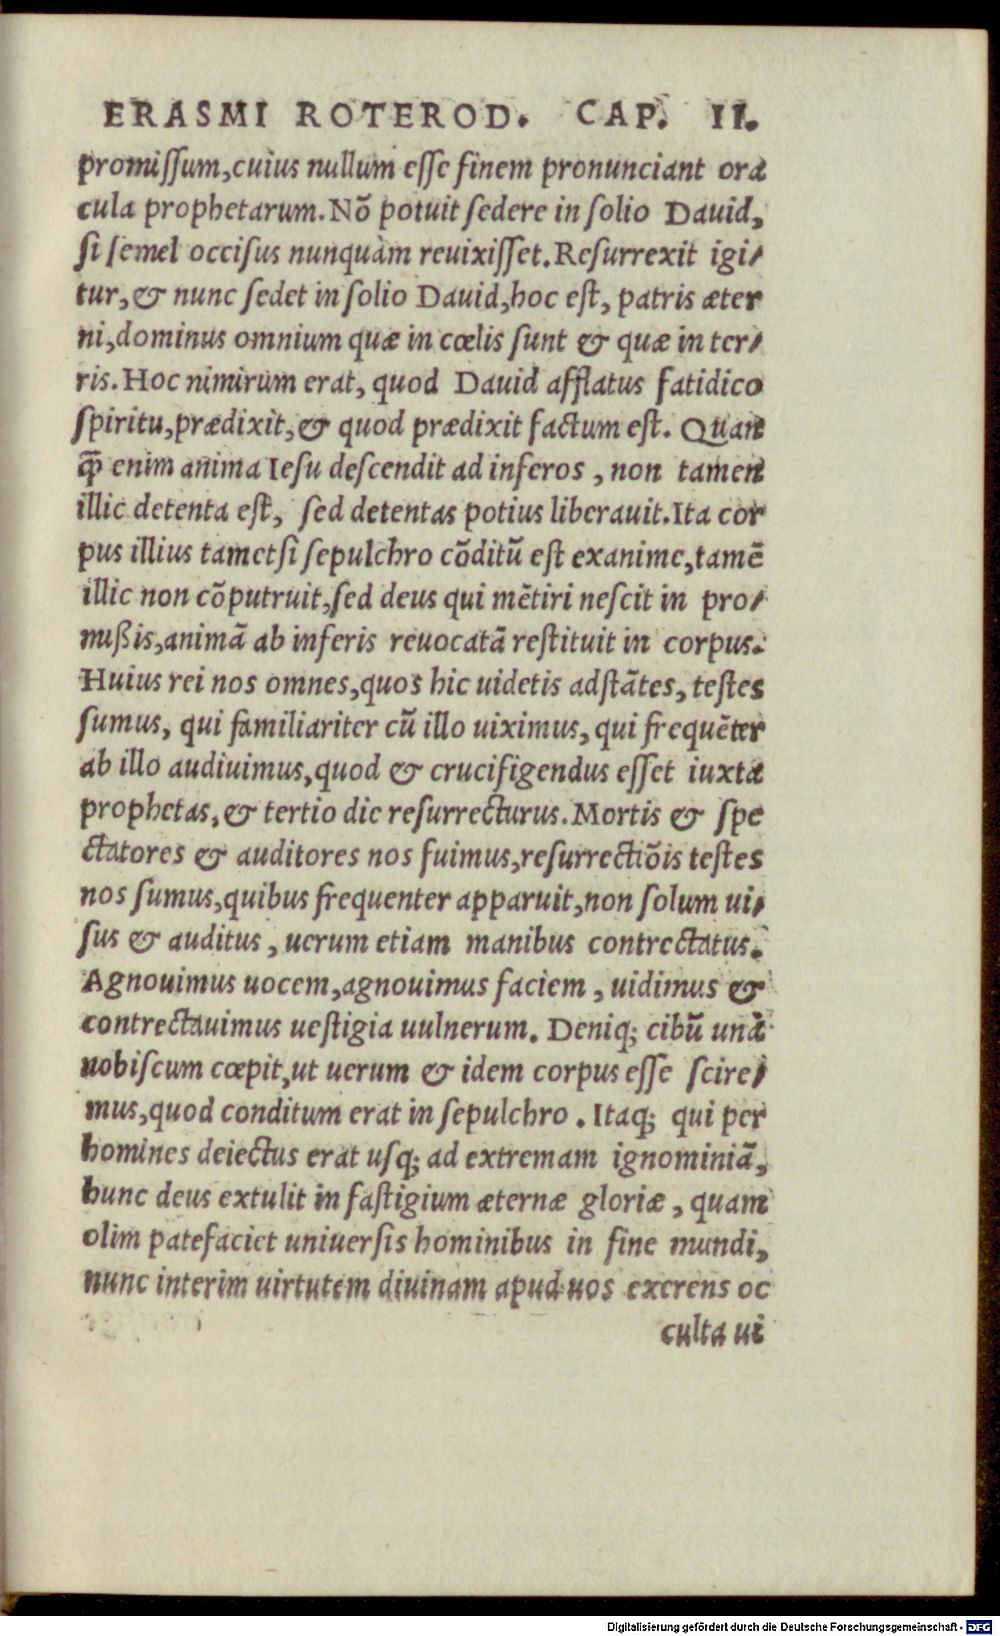 ERASMI ROTEROD. CAP. II.
promiſſum,cuius nullum eſſe finem pronunciant ora
cula prophetarum. Nõ potuit ſedere in ſolio Dauid,
ſi ſemel occiſus nunquàm reuixiſſet. Reſurrexit igi/
tur,& nunc ſedet in ſolio Dauid,hoc eſt, patris æter
ni,dominus omnium quæ in cœlis ſunt & quæ in ter/
ris. Hoc nimirum erat, quod Dauid afflatus fatidico
ſpiritu,prædixit,& quod prædixit factum eſt. Quan
ꝗ̃ enim anima Ieſu deſcendit ad inferos , non tamen
illic detenta eſt, ſed detentas potius liberauit. Ita cor
pus illius tametſi ſepulchro cõditũ eſt exanime,tamẽ
illic non cõputruit,ſed deus qui mẽtiri neſcit in pro/
mißis,animã ab inferis reuocatã reſtituit in corpus.
Huius rei nos omnes,quos hic uidetis adſtãtes, teſtes
ſumus, qui familiariter cũ illo uiximus, qui frequẽter
ab illo audiuimus,quod & crucifigendus eſſet iuxta
prophetas, & tertio die reſurrecturus. Mortis & ſpe
ctatores & auditores nos fuimus,reſurrectiõis teſtes
nos ſumus,quibus frequenter apparuit,non ſolum ui/
ſus & auditus , uerum etiam manibus contrectatus.
Agnouimus uocem,agnouimus faciem , uidimus &
contrectauimus ueſtigia uulnerum. Deniq; cibũ unà
nobiſcum cœpit,ut uerum & idem corpus eſſe ſcire/
mus,quod conditum erat in ſepulchro . Itaq; qui per
homines deiectus erat uſq; ad extremam ignominiã,
hunc deus extulit in faſtigium æternæ gloriæ , quam
olim patefaciet uniuerſis hominibus in fine mundi,
nunc interim uirtutem diuinam apud uos exerens oc
culta ui
Digitalisierung gefördert durch die Deutsche Forschungsgemeinschaft - DFG